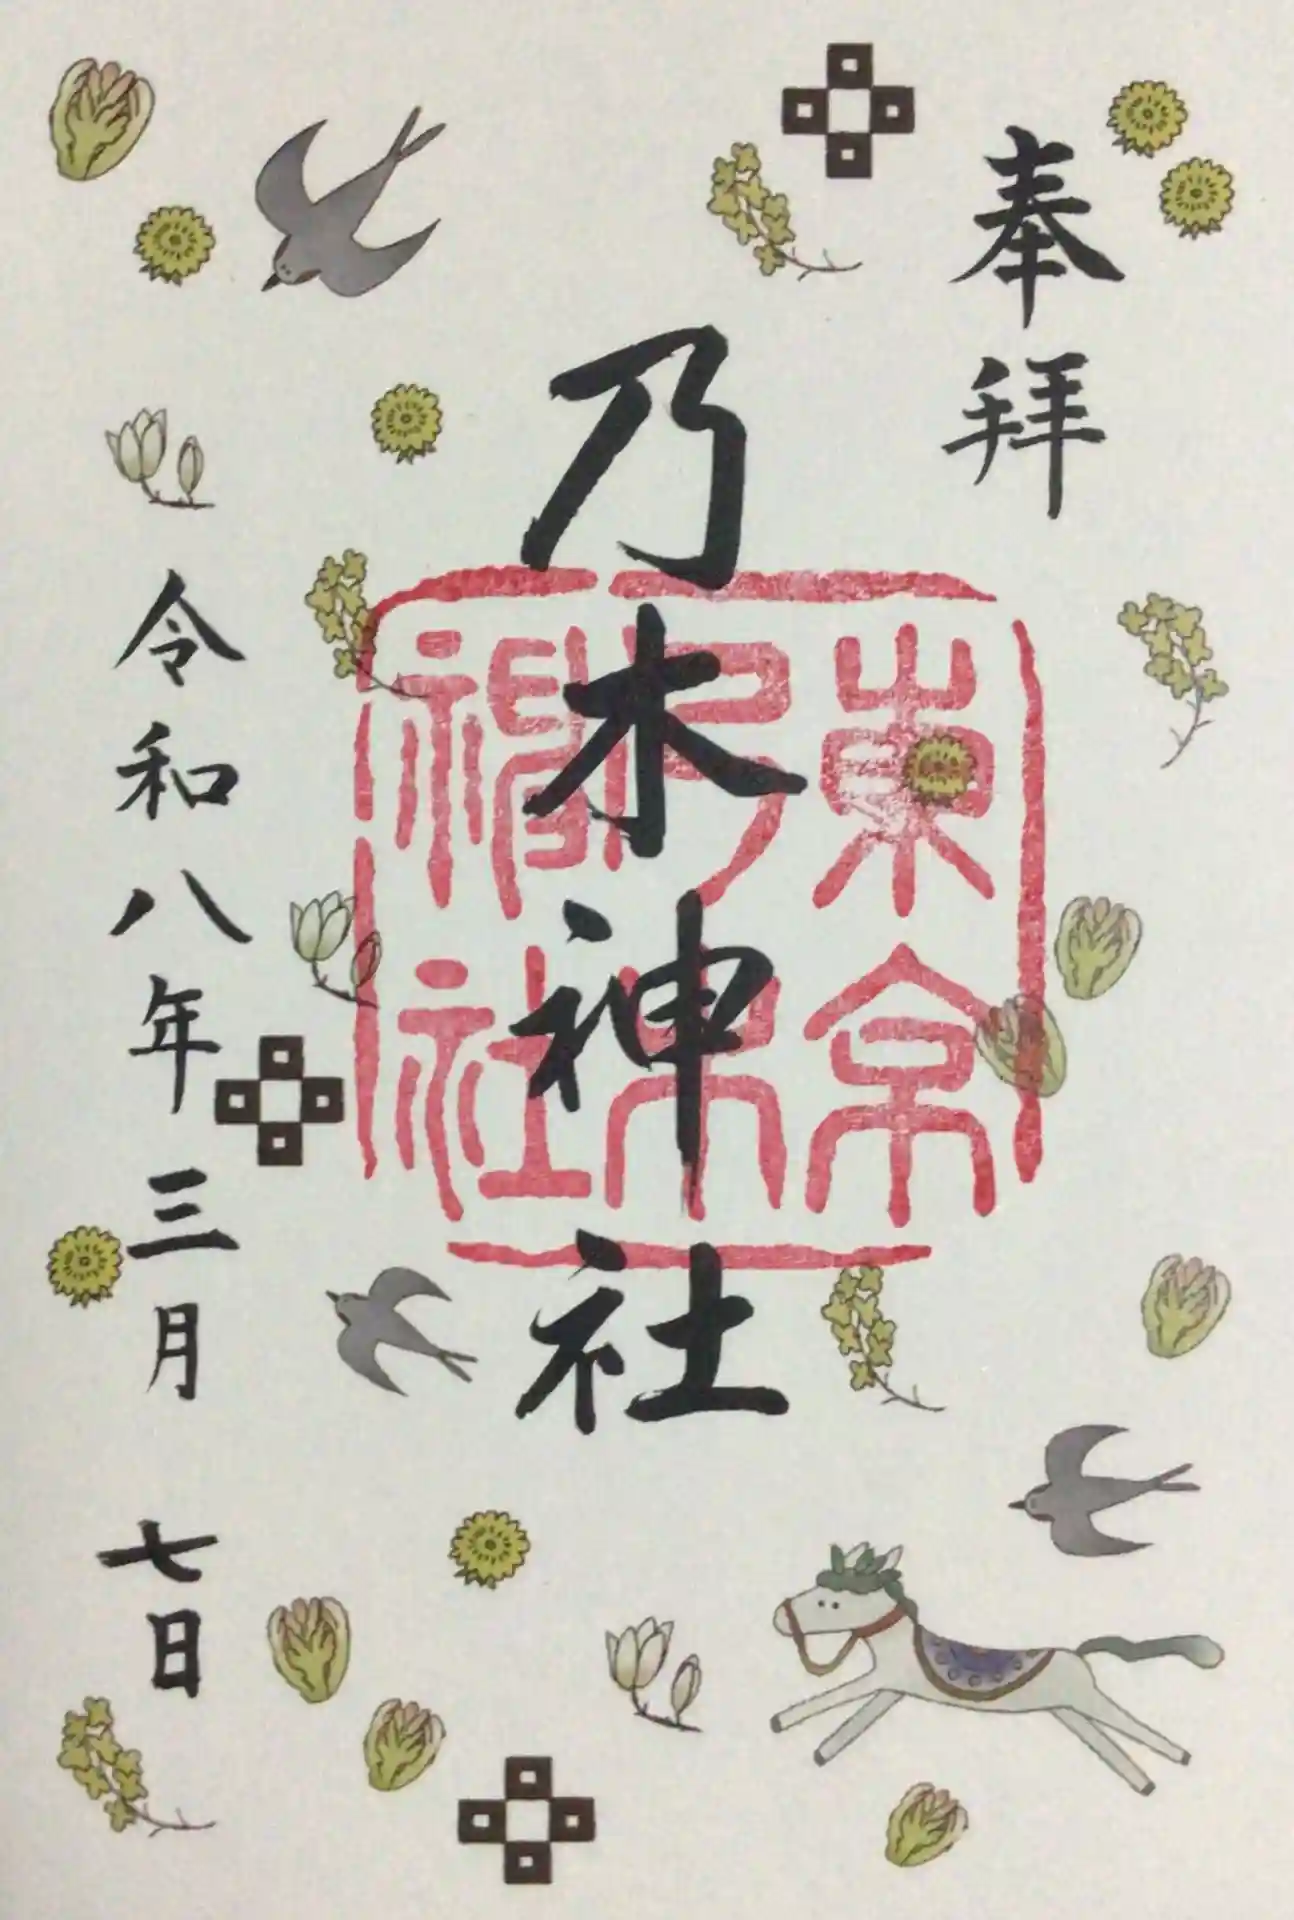 奉拝
乃木神社
東京
乃木
神社
令和八年三月七日